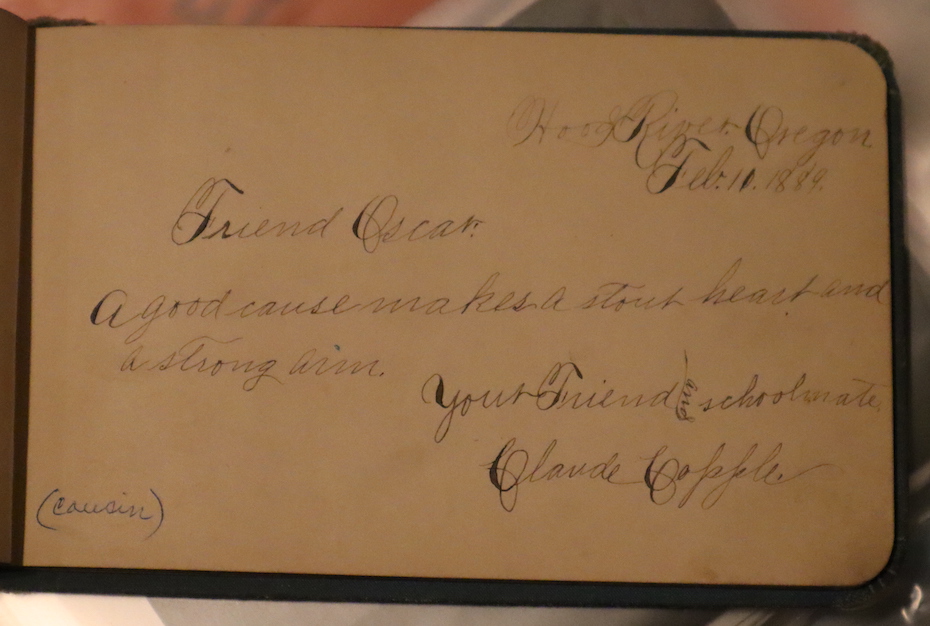 Hood River Oregon
Feb. 10. 1889.
Friend Oscar.
A good cause makes a stout heart and
a strong arm.
Your Friend and schoolmate.
Claude Copple.
(cousin)